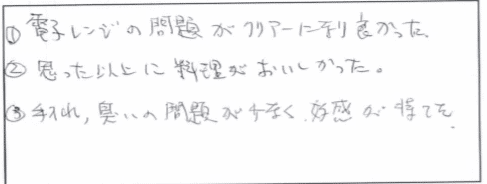 ① 電子レンジの問題がクリアーになり良かった。
② 思った以上に料理がおいしかった。
③ 手入れ,臭いの問題が少なく、好感が持てた。